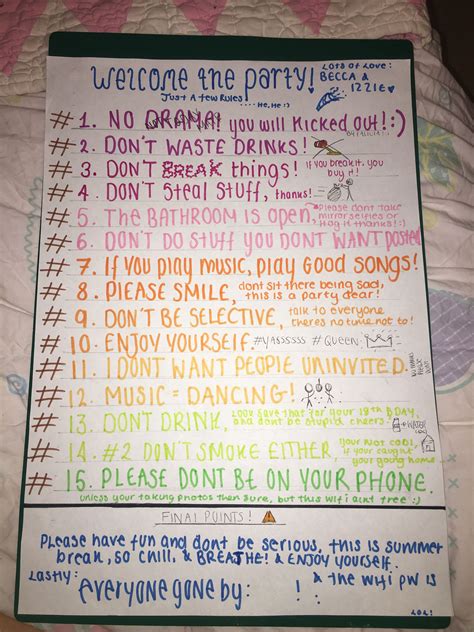 Welcome to the party!
Lots of Love:
BECCA &
IZZIE♡
Just A few Rules .... He, He :)
# 1. NO DRAMA! you will Kicked out! :)
# 2. DON'T WASTE DRINKS!
# 3. DON'T BREAK things! if you break it, you buy it!
# 4. DON'T Steal Stuff, thanks!
# 5. The BATHROOM is open, please dont take mirror selfies or hog it thanks! :)
# 6. DON'T DO STUFF YOU DONT WANT posted
# 7. If you play music, play GOOD SONGS!
# 8. PLEASE SMILE, dont sit there being sad, this is a party dear!
# 9. DON'T BE SELECTIVE, talk to everyone theres no time not to!
# 10. ENJOY YOURSELF. #YASSSSSS #QUEEN
# 11. I DONT WANT PEOPLE UNINVITED.
# 12. MUSIC = DANCING!
# 13. DON'T DRINK, Look save that for your 18th BDAY, and dont be stupid cheers.
+ WATER
# 14. #2 DON'T SMOKE EITHER, your NOT COOL, if your caught your going home
# 15. PLEASE DONT BE ON YOUR PHONE.
unless your taking photos then sure, but this wifi aint free :)
FINAL POINTS!
Please have fun and dont be serious, this is summer
break, so chill, & BREATHE! & ENJOY yourself.
Lastly:
everyone gone by: ! & the wifi pw is
:
LOL!